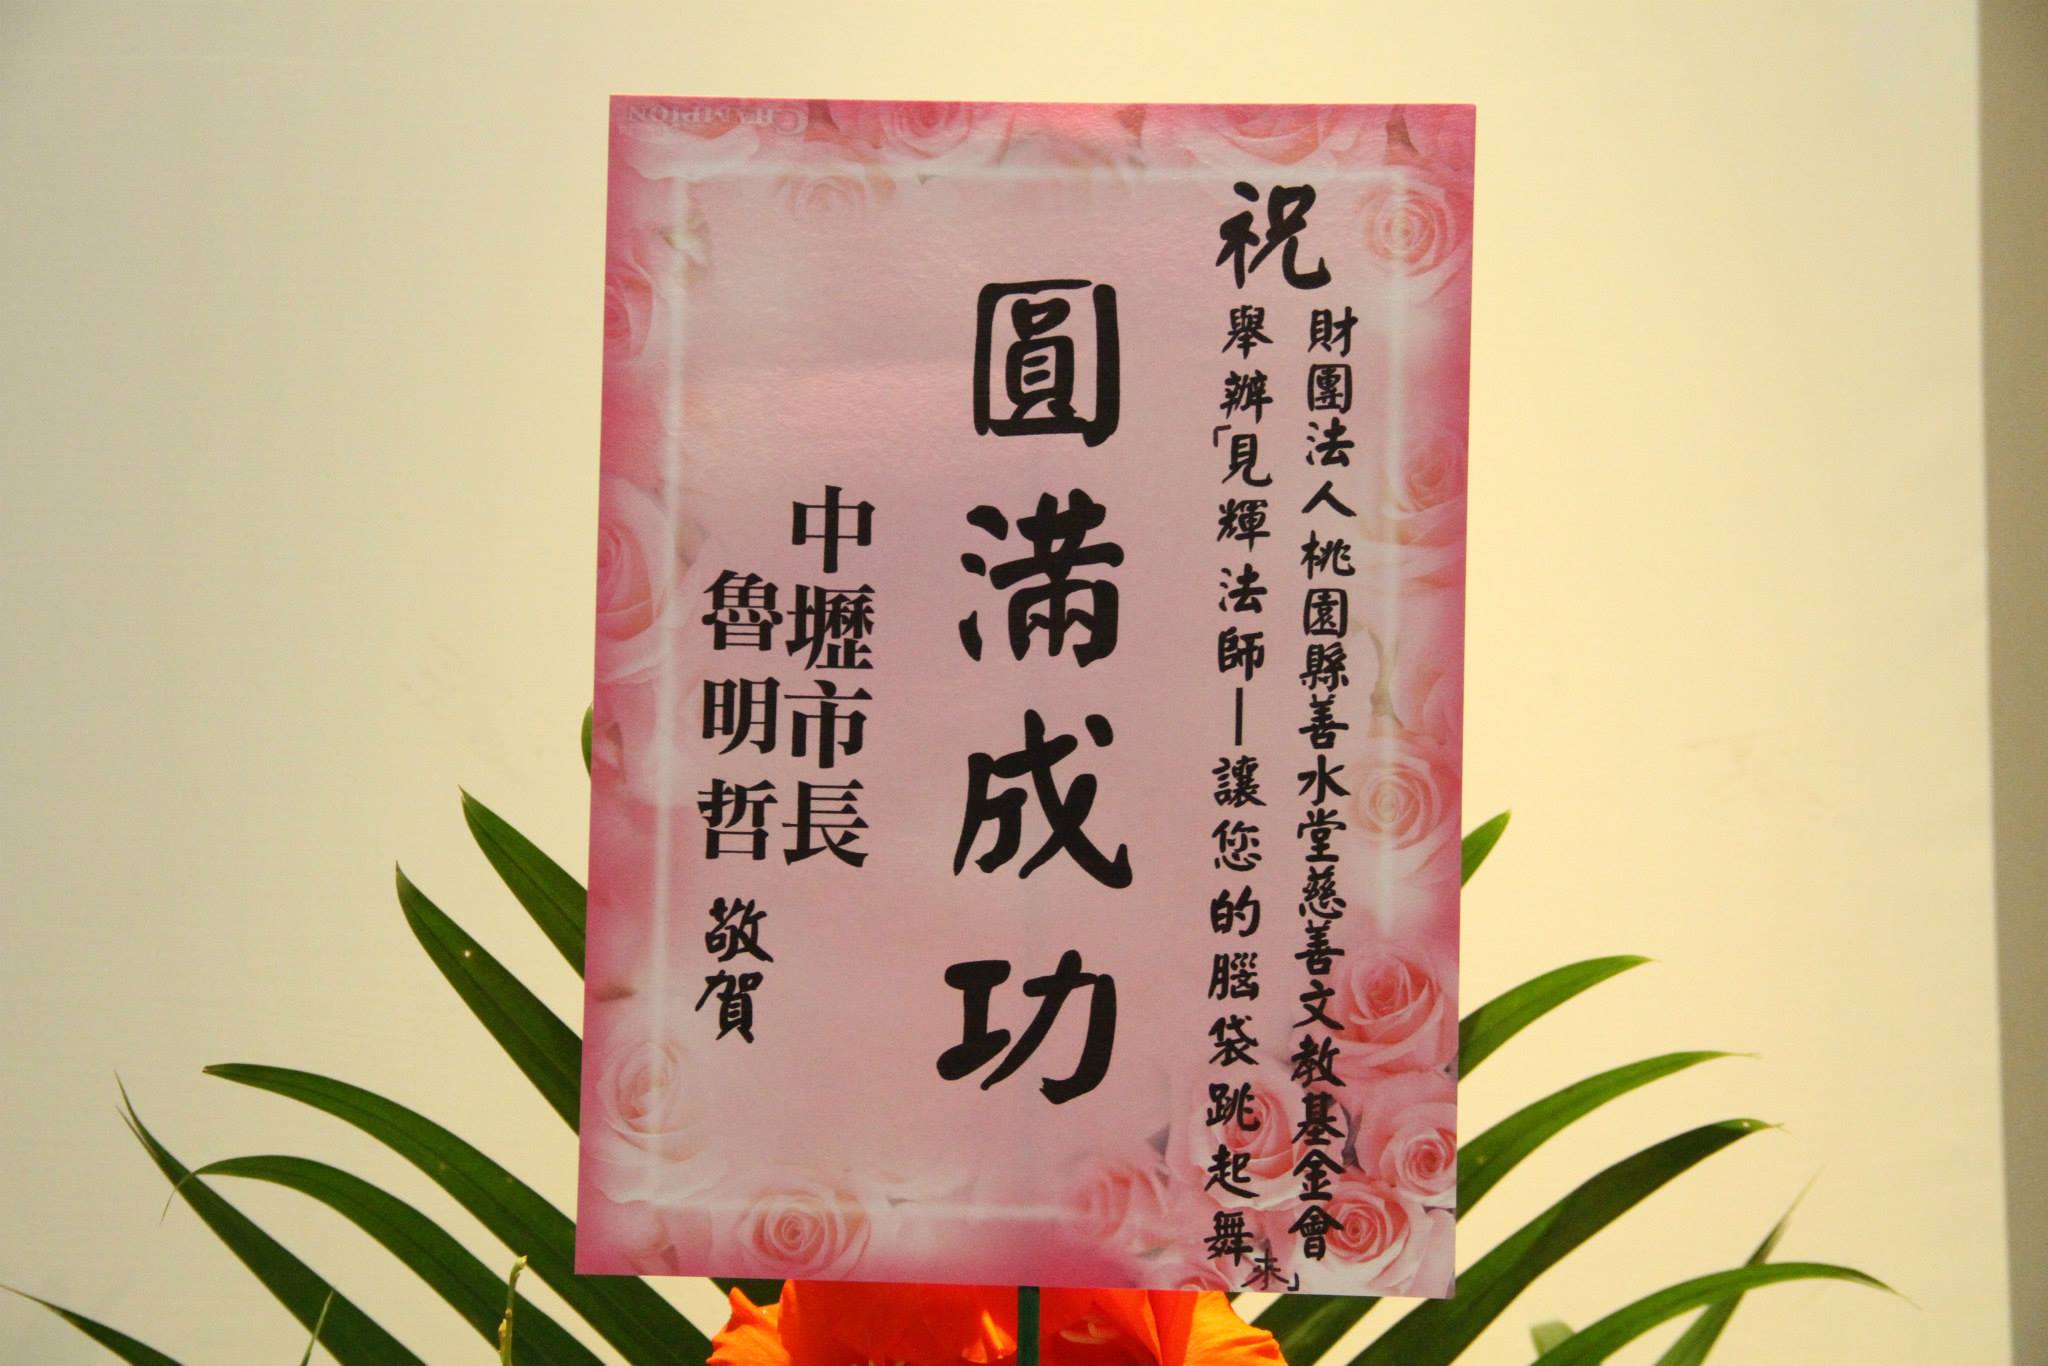 祝
財團法人桃園縣善水堂慈善文教基金會
舉辦「見輝法師—讓您的腦袋跳起舞來」
圓滿成功
中壢市長
魯明哲 敬賀
CHAMPION